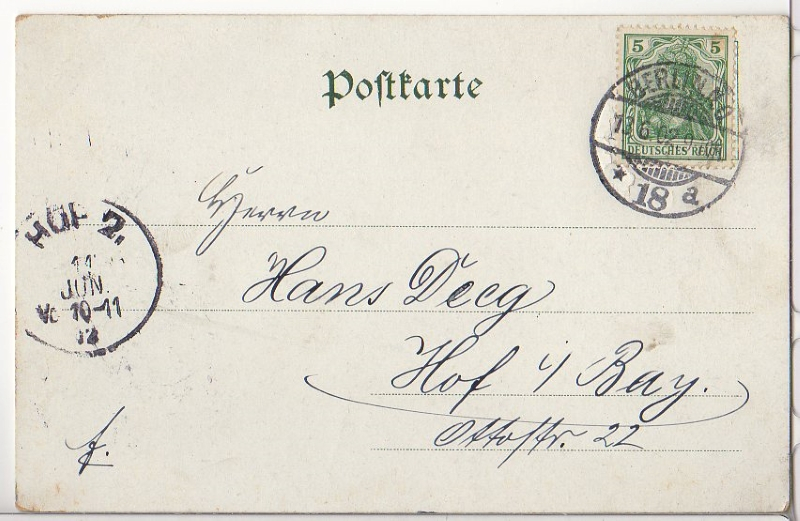 Postkarte
5 5
DEUTSCHES REICH
BERLIN N.O.
* 18 a
HOF 2.
JUN.
Vo 10-11
Herrn
Hans Decg
Hof i/ Bay.
Ottostr. 22
f.